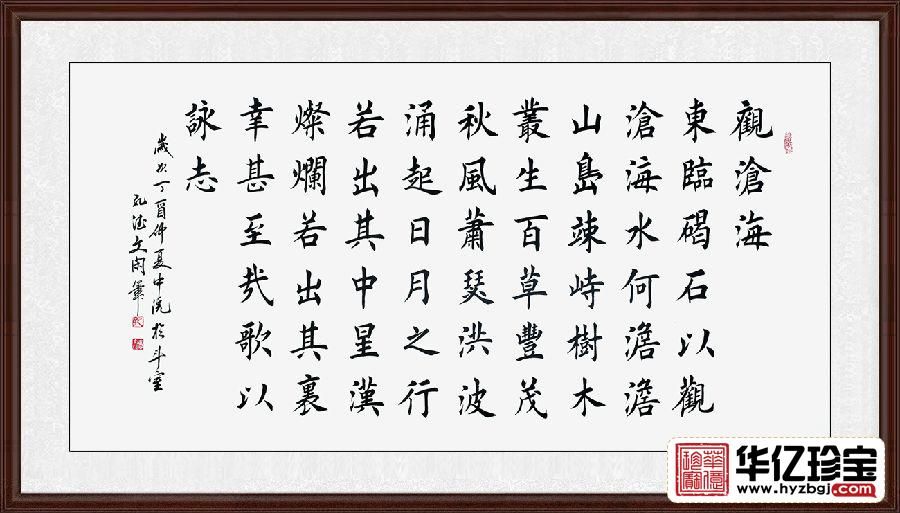 觀滄海
東臨碣石以觀
滄海水何澹澹
山島竦峙樹木
叢生百草豐茂
秋風蕭瑟洪波
涌起日月之行
若出其中星漢
燦爛若出其裏
幸甚至哉歌以
詠志
歲次丁酉仲夏中浣於斗室
华亿珍宝
www.hyzbgj.com